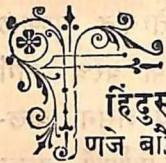 हिंदुस्
णजे बौ